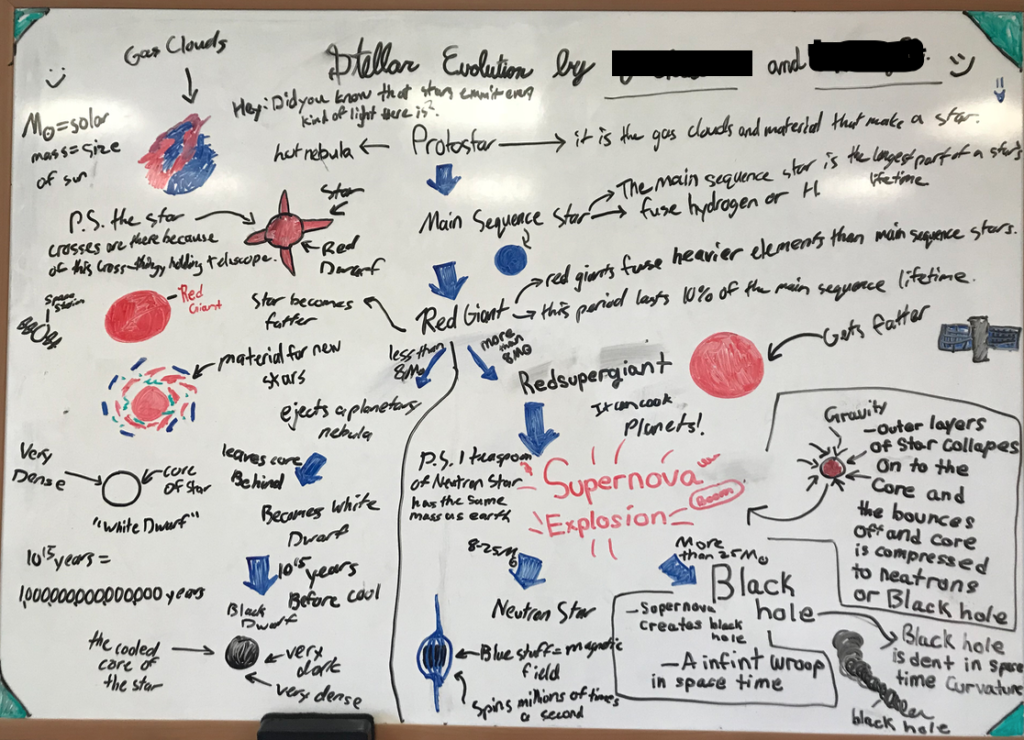 Stellar Evolution by
and
Gas Clouds
Hey: Did you know that stars emmit every
kind of light there is?
M⊙ = solar
mass = size
of sun
hot nebula
Protostar
it is the gas clouds and material that make a star.
P.S. the star
crosses are there because
of this cross-thingy holding telescope.
Star
Red
Dwarf
Main Sequence Star
The main sequence star is the longest part of a star's
lifetime
fuse hydrogen or H.
Space
Station
Red
Giant
Star becomes
fatter
Red Giant
red giants fuse heavier elements than main sequence stars.
this period lasts 10% of the main sequence lifetime.
less than
8M⊙
more
than
8M⊙
material for new
stars
ejects a planetary
nebula
Redsupergiant
Gets fatter
It can cook
Planets!
Very
Dense
core
of star
"White Dwarf"
leaves core
Behind
Becomes white
Dwarf
P.S. 1 teaspoon
of Neutron Star
has the same
mass as earth
Supernova
Explosion
Boom
Gravity
-outer layers
of Star collapses
on to the
Core and
the bounces
off and core
is compressed
to neatrons
or Black hole
10¹⁵ years =
1,000,000,000,000,000 years
10¹⁵ years
Before cool
Black
Dwarf
the cooled
core of
the star
very
dark
very dense
8-25M⊙
Neutron Star
Blue stuff = magnetic
field
Spins millions of times
a second
More
than 25M⊙
Black
hole
-Supernova
creates black
hole
-A infint wroop
in space time
Black hole
is dent in space
time curvature
black hole